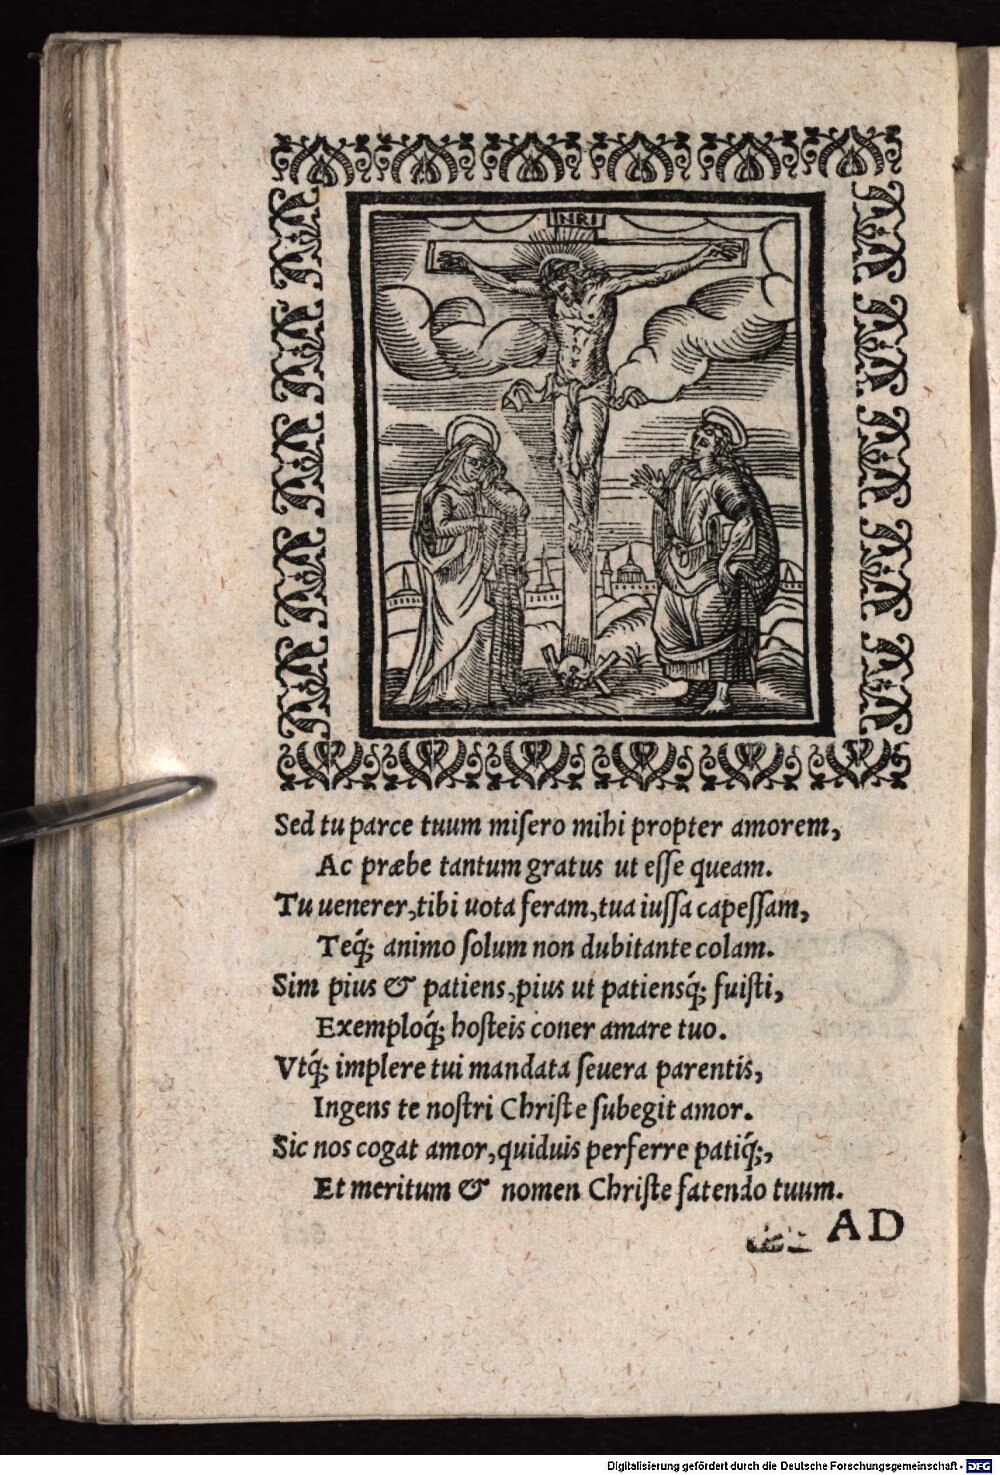 INRI
Sed tu parce tuum miſero mihi propter amorem,
Ac præbe tantum gratus ut eſſe queam.
Tu uenerer, tibi uota feram, tua iuſſa capeſſam,
Teq́; animo ſolum non dubitante colam.
Sim pius & patiens, pius ut patiensq́; fuiſti,
Exemploq́; hoſteis coner amare tuo.
Vtq́; implere tui mandata ſeuera parentis,
Ingens te noſtri Chriſte ſubegit amor.
Sic nos cogat amor, quiduis perferre patiq́;,
Et meritum & nomen Chriſte fatendo tuum.
AD
Digitalisierung gefördert durch die Deutsche Forschungsgemeinschaft - DFG